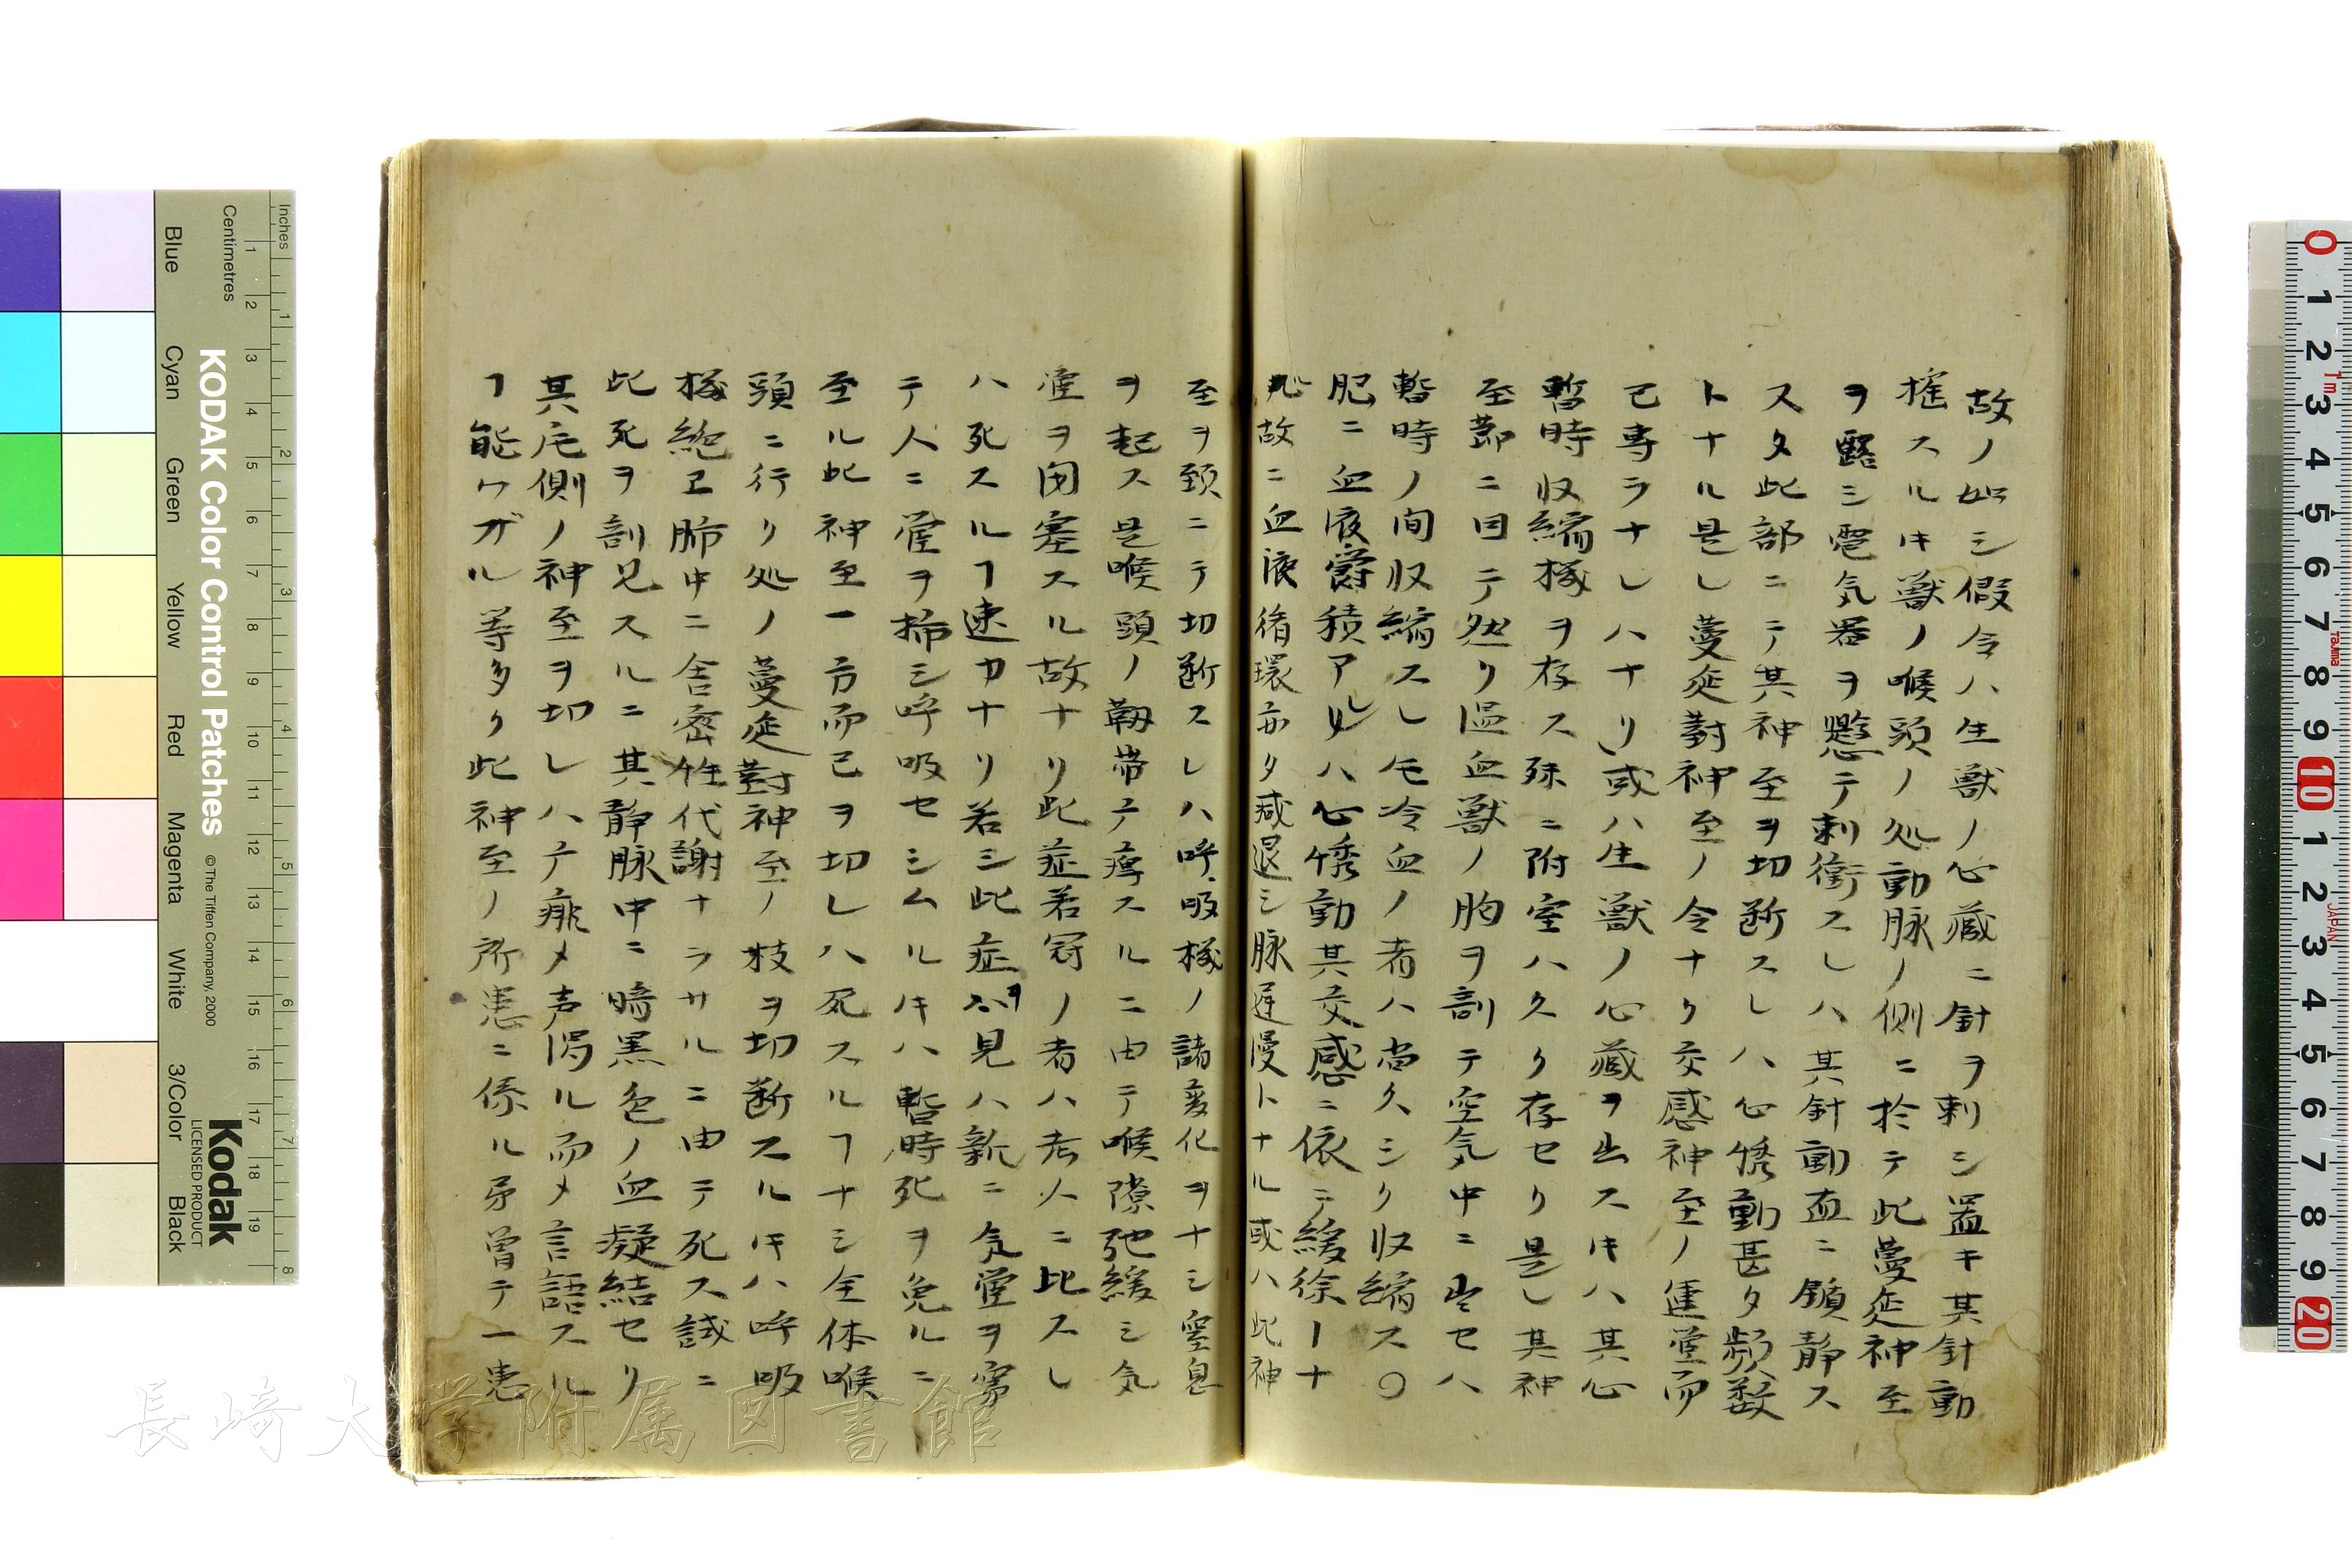 故ノ如シ假令ハ生獣ノ心蔵ニ針ヲ刺シ置キ其針動
揺スルキ獣ノ喉頭ノ処動脉ノ側ニ於テ此蔓延神至
ヲ露シ電気器ヲ懸テ刺衝スレハ其針動直ニ鎮静ス
又タ此部ニテ其神至ヲ切断スレハ心悸動甚タ頻数
トナル是レ蔓延對神至ノ令ナク交感神至ノ運営而
已専ラナレハナリ或ハ生獣ノ心蔵ヲ出スキハ其心
暫時収縮機ヲ存ス殊ニ附室ハ久ク存セリ是レ其神
至節ニ因テ然り温血獣ノ胸ヲ剖テ空気中ニ出セハ
暫時ノ間収縮スレ𪜈冷血ノ者ハ尚久シク収縮ス〇
肥ニ血液欝積アルハ心悸動其交感ニ依テ緩徐ーナ
ル故ニ血液循環亦タ减退シ脉遅慢トナル或ハ此神
至ヲ頚ニテ切断スレハ呼吸機ノ諸変化ヲナシ窒息
ヲ起ス是喉頭ノ靱帯テ痺スルニ由テ喉隙弛緩シ気
管ヲ閉塞スル故ナリ此症若冠ノ者ハ老人ニ比スレ
ハ死スルヿ速カナリ若シ此症ヲ見ハ新ニ気管ヲ穿
テ人ニ管ヲ挿シ呼吸セシムルキハ暫時死ヲ免ルニ
至ル此神至一方而已ヲ切レハ死スルヿナシ全体喉
頭ニ行リ処ノ蔓延對神至ノ枝ヲ切断スルキハ呼吸
機絶エ肺中ニ舎密性代謝ナラサルニ由テ死ス試ニ
此死ヲ剖見スルニ其静脉中ニ暗黒色ノ血凝結セリ
其片側ノ神至ヲ切レハ片痱メ声渇ル而メ言語スル
ヿ能ワガル等多ク此神至ノ所患ニ係ル予曽テ一患
KODAK Color Control Patches
©The Tiffen Company, 2000
Kodak
LICENSED PRODUCT
Inches
Centimetres
Blue
Cyan
Green
Yellow
Red
Magenta
White
3/Color
Black
長崎大学附属図書館
JAPAN